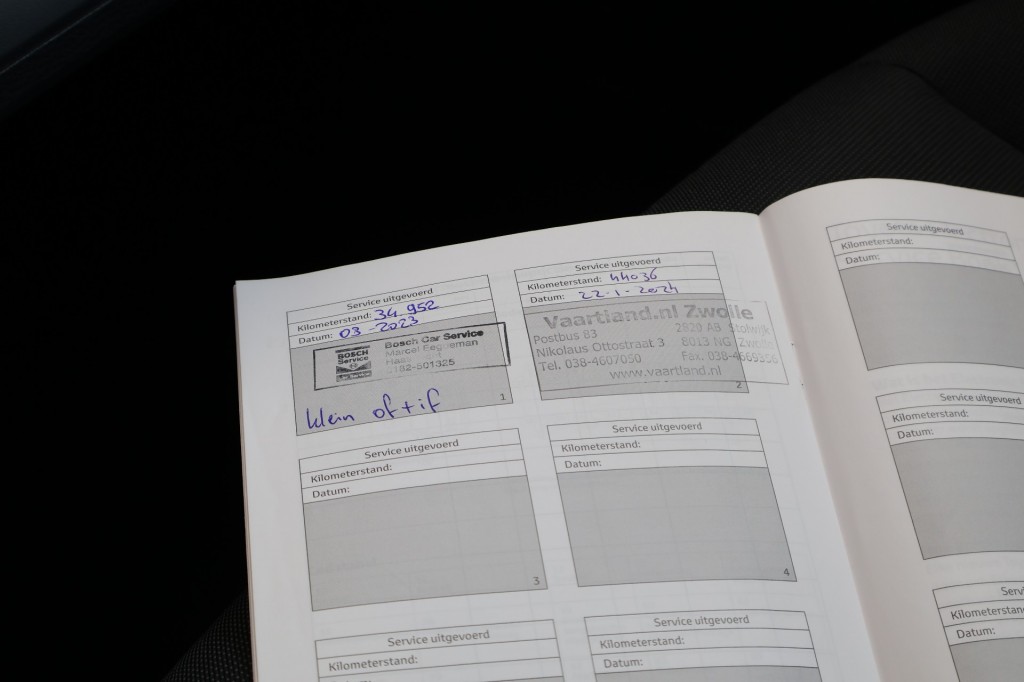 Service uitgevoerd
Kilometerstand: 34 952
Datum: 03-2023
BOSCH
Service
Bosch Car Service
Marcel
182-501325
klein
1
Service uitgevoerd
Kilometerstand: 44036
Datum: 22-1-2024
Vaartland.nl Zwolle
Postbus 83 2820 AB Stolwijk
Nikolaus Ottostraat 3 8013 NG Zwolle
Tel. 038-4607050 Fax. 038-4665356
www.vaartland.nl
2
Service uitgevoerd
Kilometerstand:
Datum:
3
Service uitgevoerd
Kilometerstand:
Datum:
4
Service uitgevoerd
Kilometerstand:
Service uitgevoerd
Kilometerstand:
Datum:
Service uitgevoerd
Kilometerstand:
Datum:
Service uitgevoerd
Kilometerstand:
Datum:
Kilometerstand
Datum: